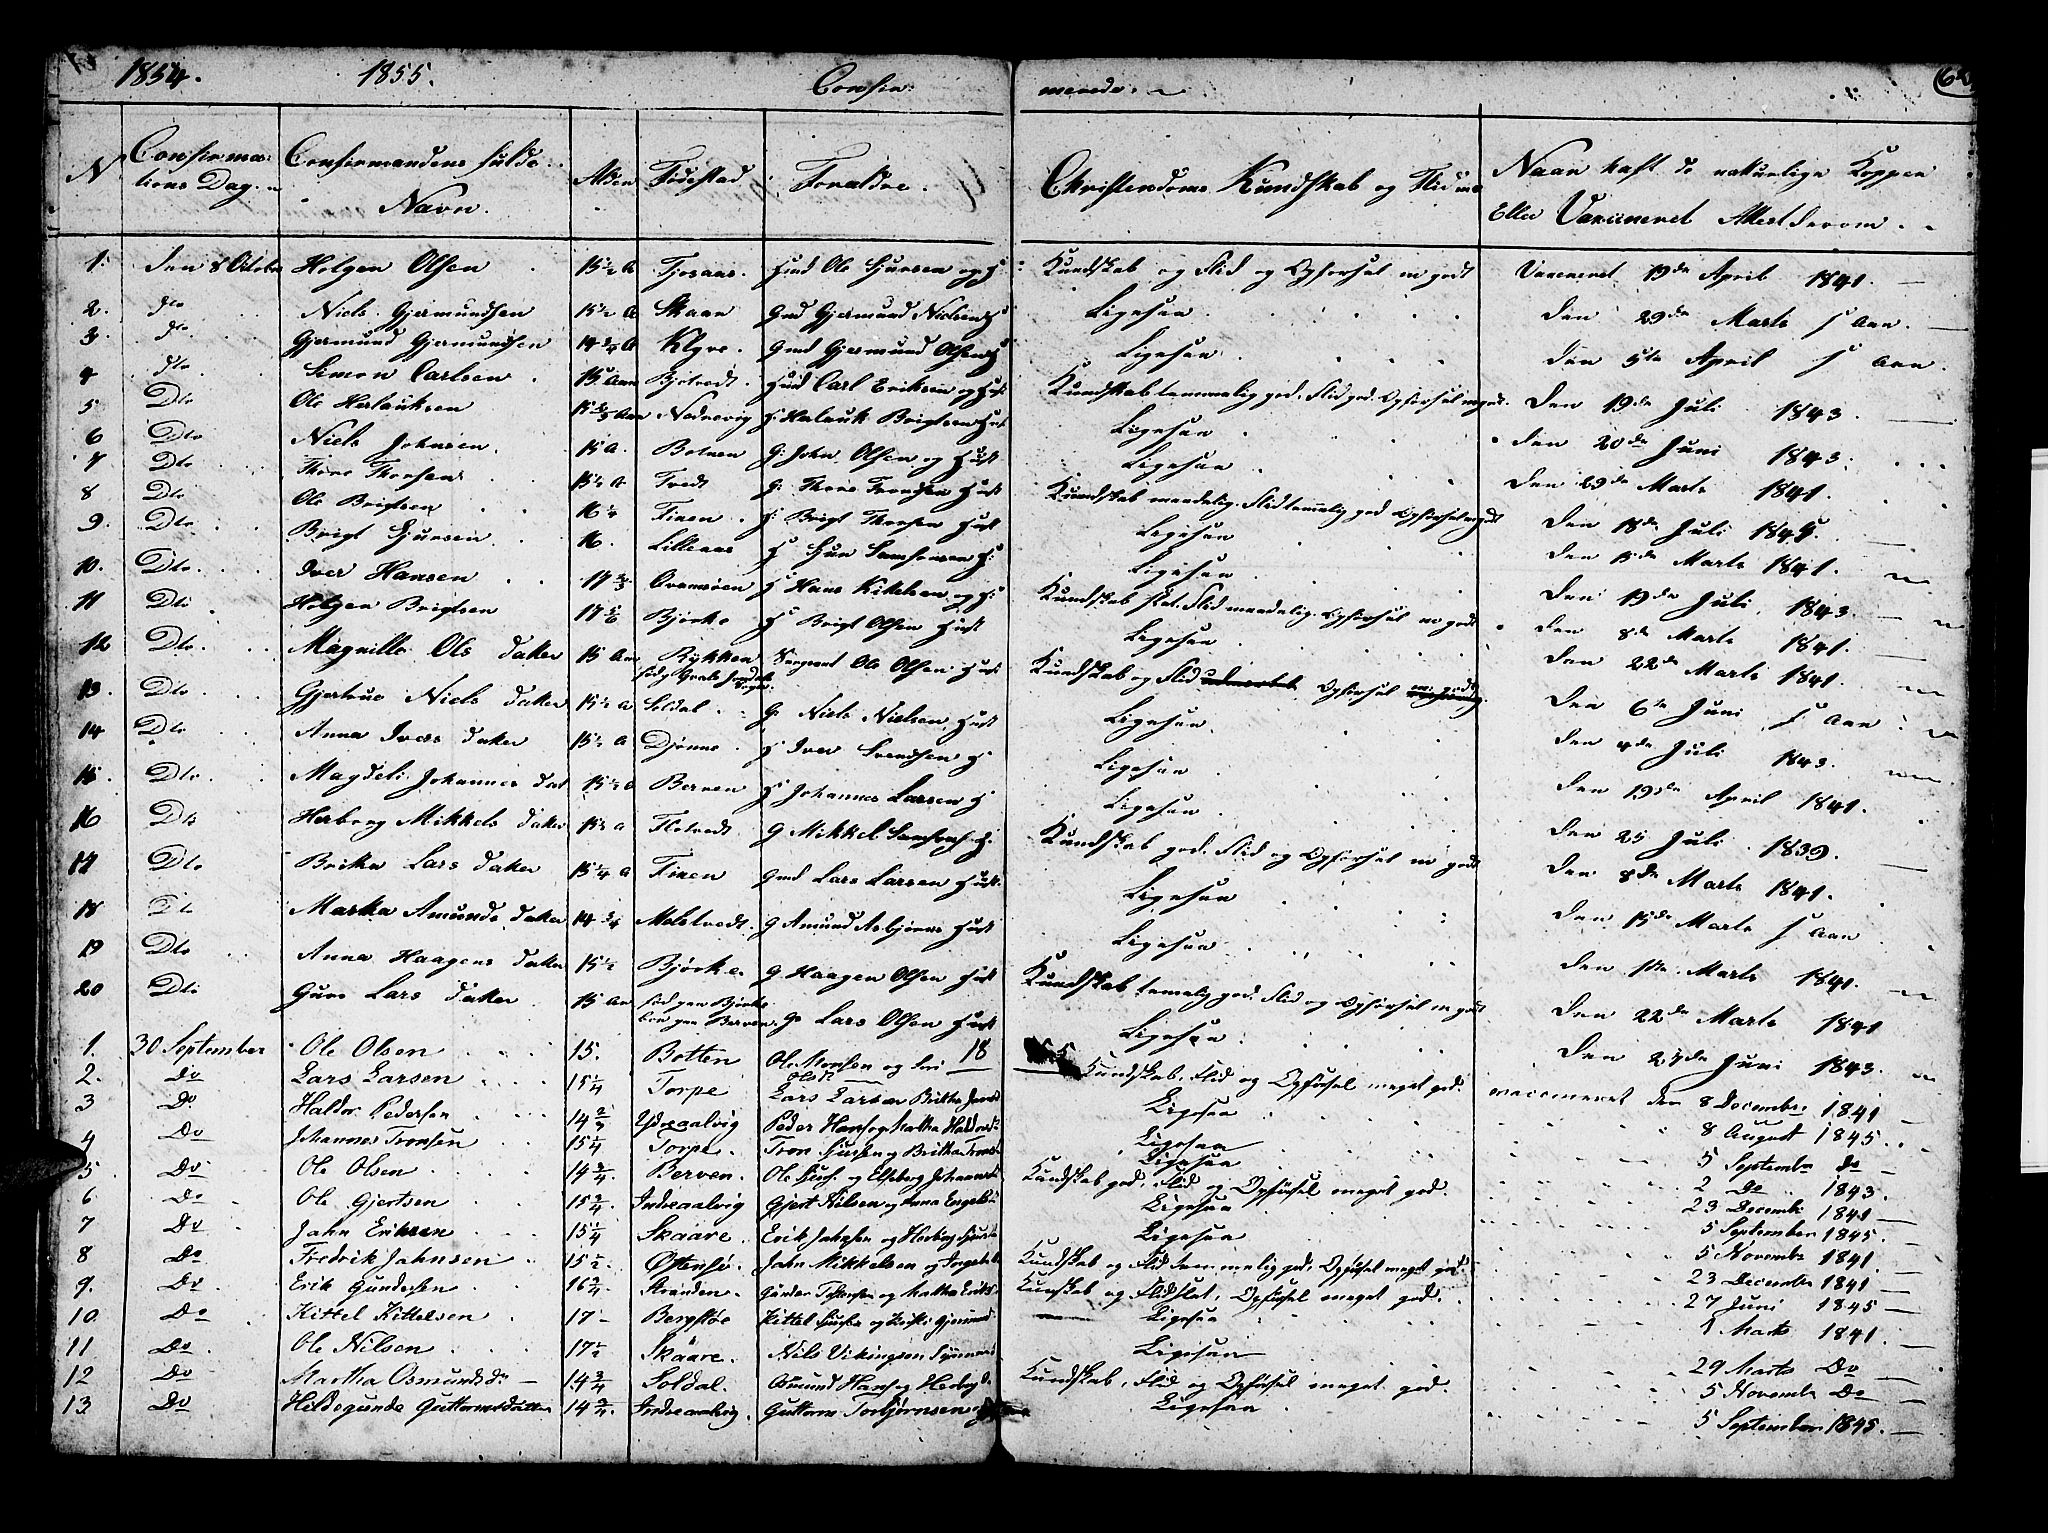 1854. 1855. Confir- merede.
N Confirma- Confirmandens fulde Alder Fødestæd Forældre. Christendoms Kundskab og Flid Naar haft de naturlige Kopper
tions Dag. Navn. Eller Vaccineret Attest derom.
1. den 8 October Holgen Olsen 15 1/2 A Hmd Ole Sjursen og H Kundskab og Flid og Opførsel m godt Vaccineret 19de April 1841.
2. dto Niels Gjermundsen 15 1/2 A Skaar Gmd Gjermund Nielsen H Ligesaa den 29de Marts s Aar.
3. dto Gjermund Gjermundsen 14 3/4 A Klyve. Gmd Gjermund Olsen H Ligesaa den 5te April s Aar.
4 dto Simon Carlsen 15 Aar Hmd Carl Eriksen og Hust Kundskab temmelig god. Flid god. Opførsel m god. Den 19de Juli 1843.
5 Dto Ole Herlauksen Nedrevig H Halauk Brigtsen Hust Ligesaa den 20de Juni 1843.
6 Dto Niels Johnsen 15 A. Botnen G. John Olsen og Hust Ligesaa Den 29de Marts 1841.
7 Dto Thore Thorsen 15 1/2 A Tvedt G. Thore Trondsen Hust Kundskab maadelig. Flid temelig god Opførsel m godt Den 18de Juli
8 Dto Ole Brigtsen 16 1/4 Fixen H. Brigt Thorsen Hust Ligesaa Den 15de Marts 1841.
9. Dto Brigt Sjursen 16. Lillenæs H Sjur Samsonsen H. Ligesaa Den 19de Juli 1843
10. Dto Iver Hansen H Hans Kitelsen og H. Kundskab slet. Flid maadelig. Opførsel m godt Den 8de Marts 1841.
11 Dto Holgen Brigtsen Bjørke H Brigt Olsen Hust Ligesaa Den 22de Marts 1841.
12 Dto Magnille Ols Dater 15 Aar Rykken Sergeant Ole Olsen Hust Kundskab og Flid Opførsel Den 6te Juni s Aar
13. Dto Gjertrue Niels Dater 15 1/2 A Soldal G. Niels Nielsen Hust Ligesaa Den Juli 1843
14 Dto Anna Ivers Dater 15 1/2 A Djønne H Iver Svendsen H Ligesaa Den 19de April 1841.
15. Dto Magdeli Johannes Dat 15 1/2 A Berven H Johannes Larsen H Ligesaa Den 25 Juli 1839.
16 Dto Herborg Mikkels Dater 15 1/2 A Flotvedt G Mikkel Samsons H. Kundskab god. Flid og Opførsel m godt Den 8de Marts 1841.
17 Dto Brita Lars Dater 15 1/4 A Fixen Gmd Lars Larsen Hust. Ligesaa Den 15de Marts s Aar
18 Dto Marta Amunds Dater 14 3/4 Molstvedt. G Amund Asbjørns Hust Ligesaa Den 1ste Marts 1841.
19 Dto Anna Haagens Dater 15 1/2 Bjørke G Haagen Olsen Hust Kundskab temelig god. Flid og Opførsel m godt Den 22de Marts 1841
20 Dto Guro Lars Dater 15 Aar fød paa Bjørke boe paa Berven G Lars Olsen Hust Ligesaa Den 27de Juni 1843.
18 55
1. 30 September Ole Olsen 15. Botten Ole Monsen og Siri Olsdt Kundskab, Flid og Opførsel meget god. vaccineret den 8 December 1841
2. Do Lars Larsen 15 1/4 Torpe Lars Larsen Brittha Ligesaa 8 August 1845.
3 Do Haldor Pedersen Ydreaalvig Peder Hans og Martha Haldorsd Ligesaa 5 September Do
4 Do Johannes Tronsen 15 1/4 Torpe. Tron Sjursen og Britha Ligesaa 2 Do 1843.
5 Do Ole Olsen 14 3/4. Berven. Ole Sjurs. og Elseberg Johannesd Kundskab god, Flid og Opførsel meget god. 23 Decembr 1841
6 Do Ole Gjertsen 15 3/4. Indreaalvig Gjert Nilsen og Anna Engelsd Ligesaa 5 September 1845.
7 Do Jahn Eriksen 15 1/4 Skaare. Erik Jahnsen og Herborg Ligesaa 5 Novembr 1841
8 Do Fredrik Jahnsen 15 1/2. Østensø. Jahn Mikkelsen og Ingeb. Kundskab og Flid temmelig god, Opførsel meget god. 23 December 1841
9. Do Erik Gundersen 16 3/4 Stranden. Gunder og Martha Eriks. Kunskab og Flid slet, Opførsel meget god. 27 Juni 1845
10 Do Kittel Kittelsen 17 Bergstøe Kittel og Gjermund Ligesaa 1 Marts 1841.
11 Do Ole Nilsen 17 1/2 Skaare. Nils Vikingsen Ligesaa 29 Marts Do
12 Do Martha Osmundsdr 14 3/4 Soldal. Osmund Hans og Herborg Kundskab, Flid og Opførsel meget god. 5 Novembr Do
13 Do Hildegunde Guttormsdatter 14 3/4. Indreaalvig. Guttorm Torbjørnsen Ligesaa 5 September 1845.